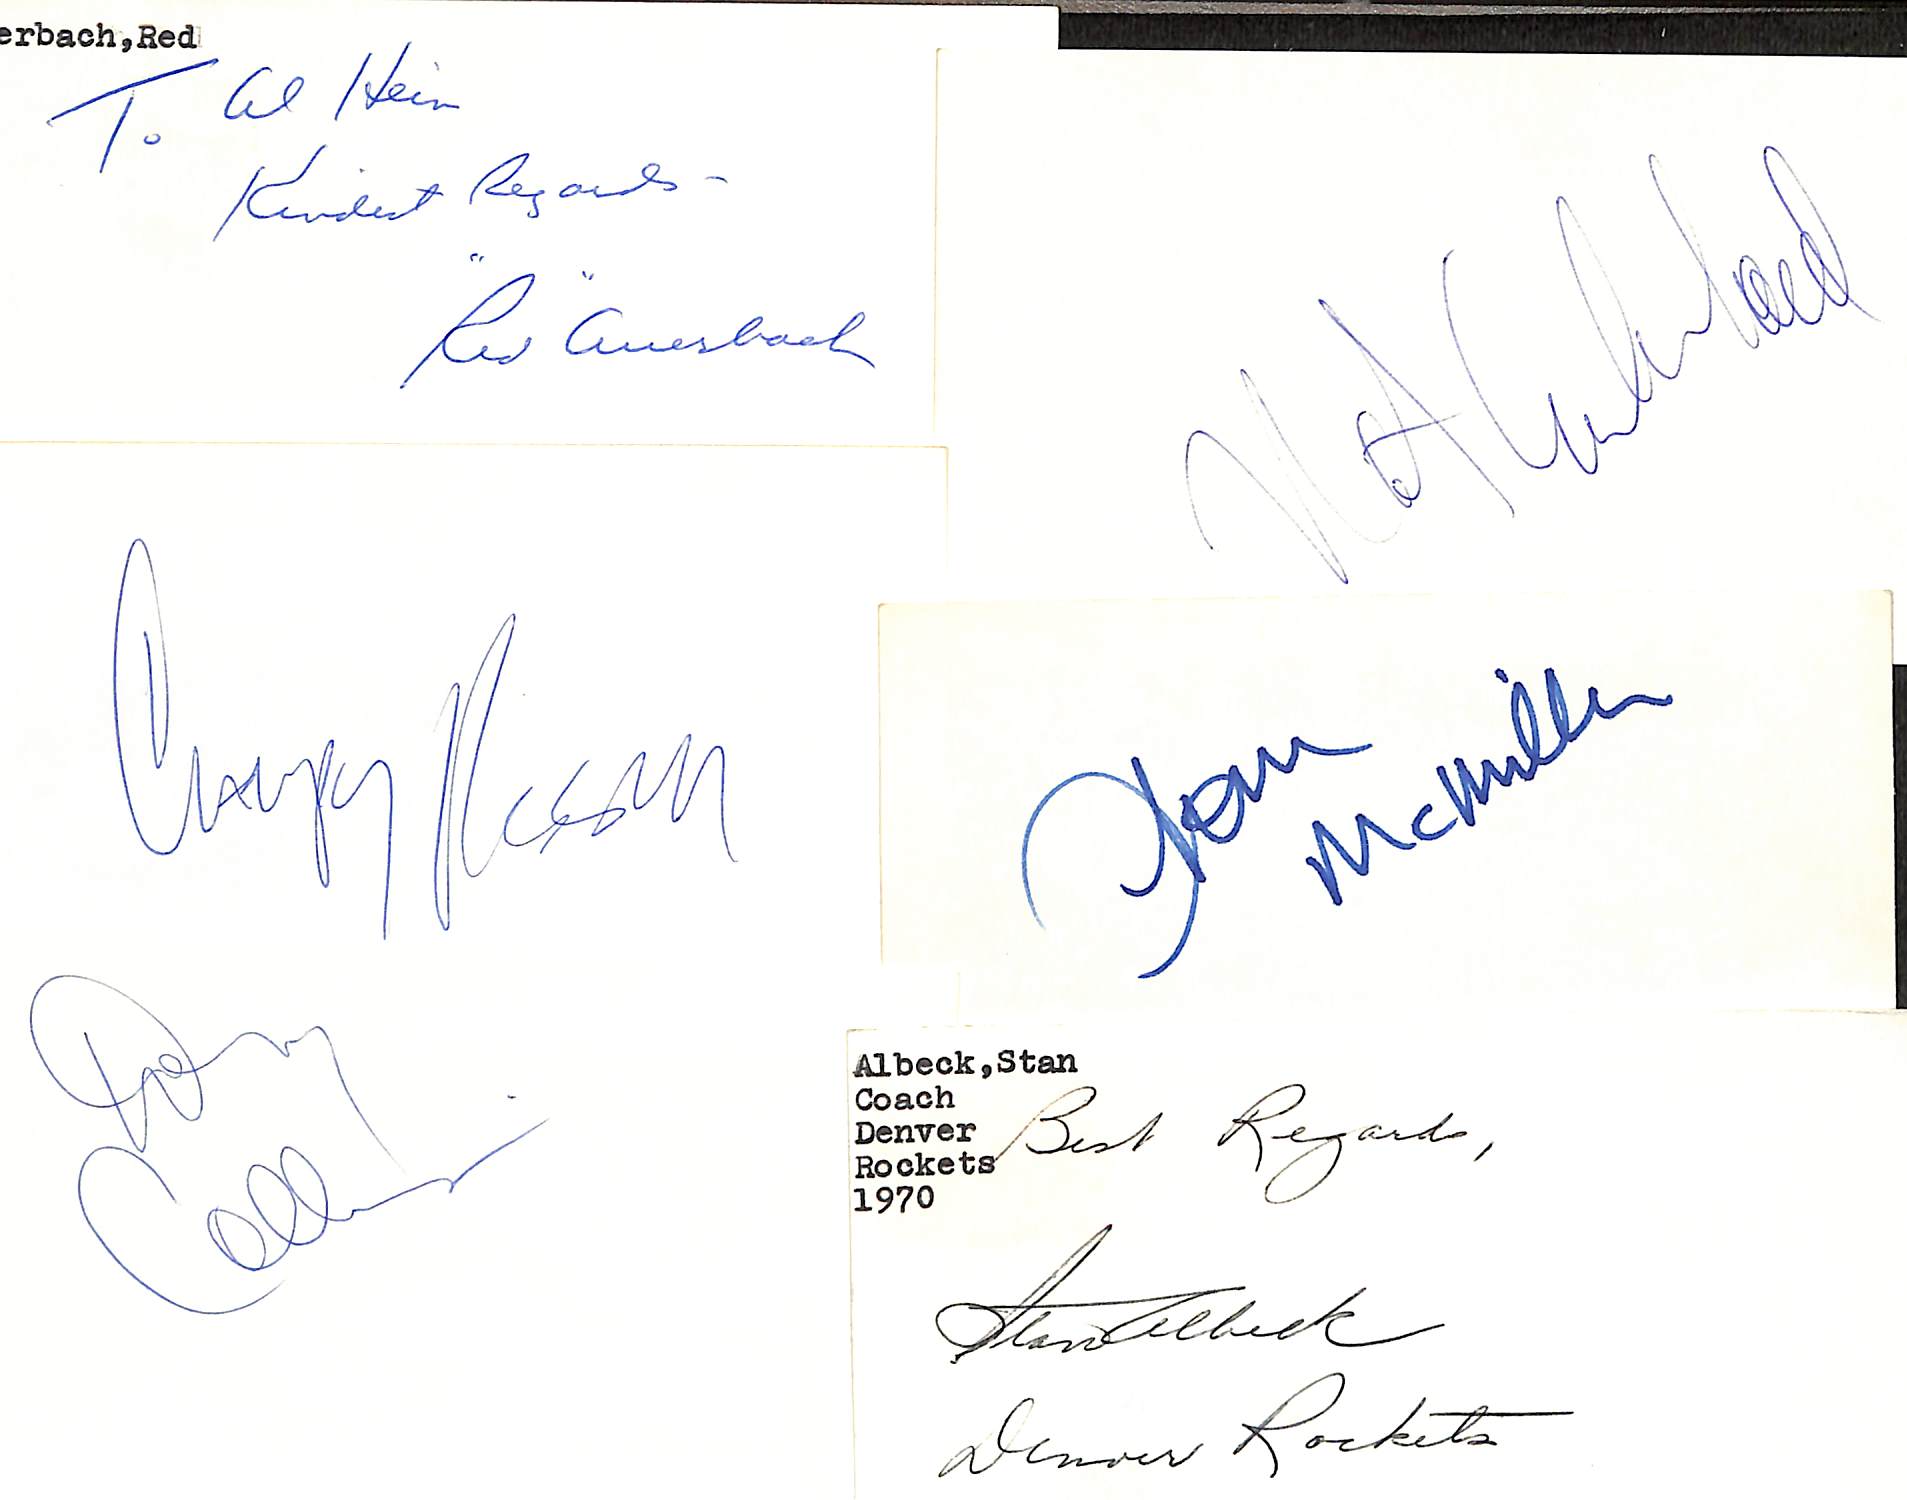 erbach,Red
To Al Hein
Kindest Regards-
"Red" Auerbach
Tom
McMillen
Doug
Collins
Albeck,Stan
Coach
Denver
Rockets
1970
Best Regards,
Stan Albeck
Denver Rockets